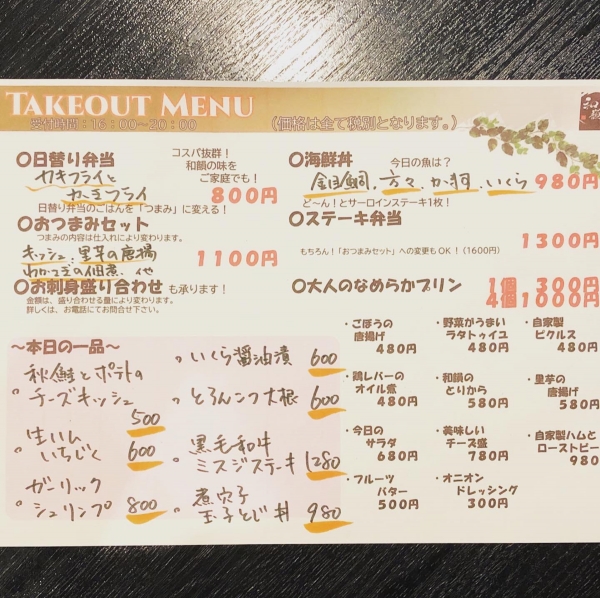 TAKEOUT MENU
受付時間：16：00～20：00
(価格は全て税別となります。)
○日替り弁当
コスパ抜群！
和韻の味を
ご家庭でも！
カキフライと
800円
日替り弁当のごはんを「つまみ」に変える！
○おつまみセット
つまみの内容は仕入れにより変わります。
キッシュ、里芋の唐揚
わかさぎの佃煮、他
1100円
○お刺身盛り合わせ も承ります！
金額は、盛り合わせる量により変わります。
詳しくは、お電話にてお問合せ下さい。
○海鮮丼
今日の魚は？
金目鯛、いくら
980円
ど～ん！とサーロインステーキ1枚！
○ステーキ弁当
1300円
もちろん！「おつまみセット」への変更もOK！（1600円）
○大人のなめらかプリン
1個 300円
4個1000円
～本日の一品～
秋鮭とポテトの
チーズキッシュ
500
。生ハム
いちじく
600
ガーリック
。シュリンプ
800
。いくら醤油漬 600
。とろんこつ大根 600
。黒毛和牛
ミスジステーキ 1280
。煮穴子
玉子とじ丼 980
・ごぼうの
唐揚げ
480円
・野菜がうまい
ラタトゥイユ
480円
・自家製
ピクルス
480円
・鶏レバーの
オイル煮
480円
・和韻の
とりから
580円
・里芋の
唐揚げ
580円
・今日の
サラダ
680円
・美味しい
チーズ盛
780円
・自家製ハムと
ローストビー
980
・フルーツ
バター
500円
・オニオン
ドレッシング
300円